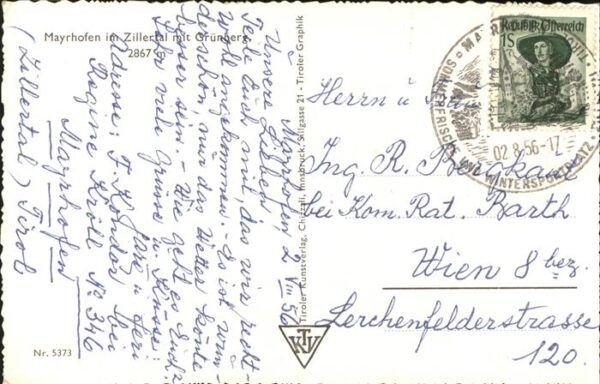 Mayrhofen im Zillertal mit Grünberg,
2867 m
Mayrhofen, 2. VIII. 56
Unsere Lieben
Teile Euch mit, das wir recht
wohl angekommen. Es ist wun-
derschön, nur das Wetter könnte
besser sein. Wie geht es Euch?
Sehr viele Grüsse u. Küsse:
u. Geri
Adresse: F. Kondor, bei
Regine Kröll No 346
Mayrhofen
(Zillertal) Tirol
Tiroler Kunstverlag, Chizzali, Innsbruck, Stilgasse 21 - Tiroler Graphik
TKV
Nr. 5373
Republik Österreich
1 S
02.8.56-17
SOMMERFRISCHE UND WINTERSPORTPLATZ
Herrn u
Ing. R. Bergkar
bei Kom. Rat. Barth
Wien 8 bez.
Lerchenfelderstrasse
120.